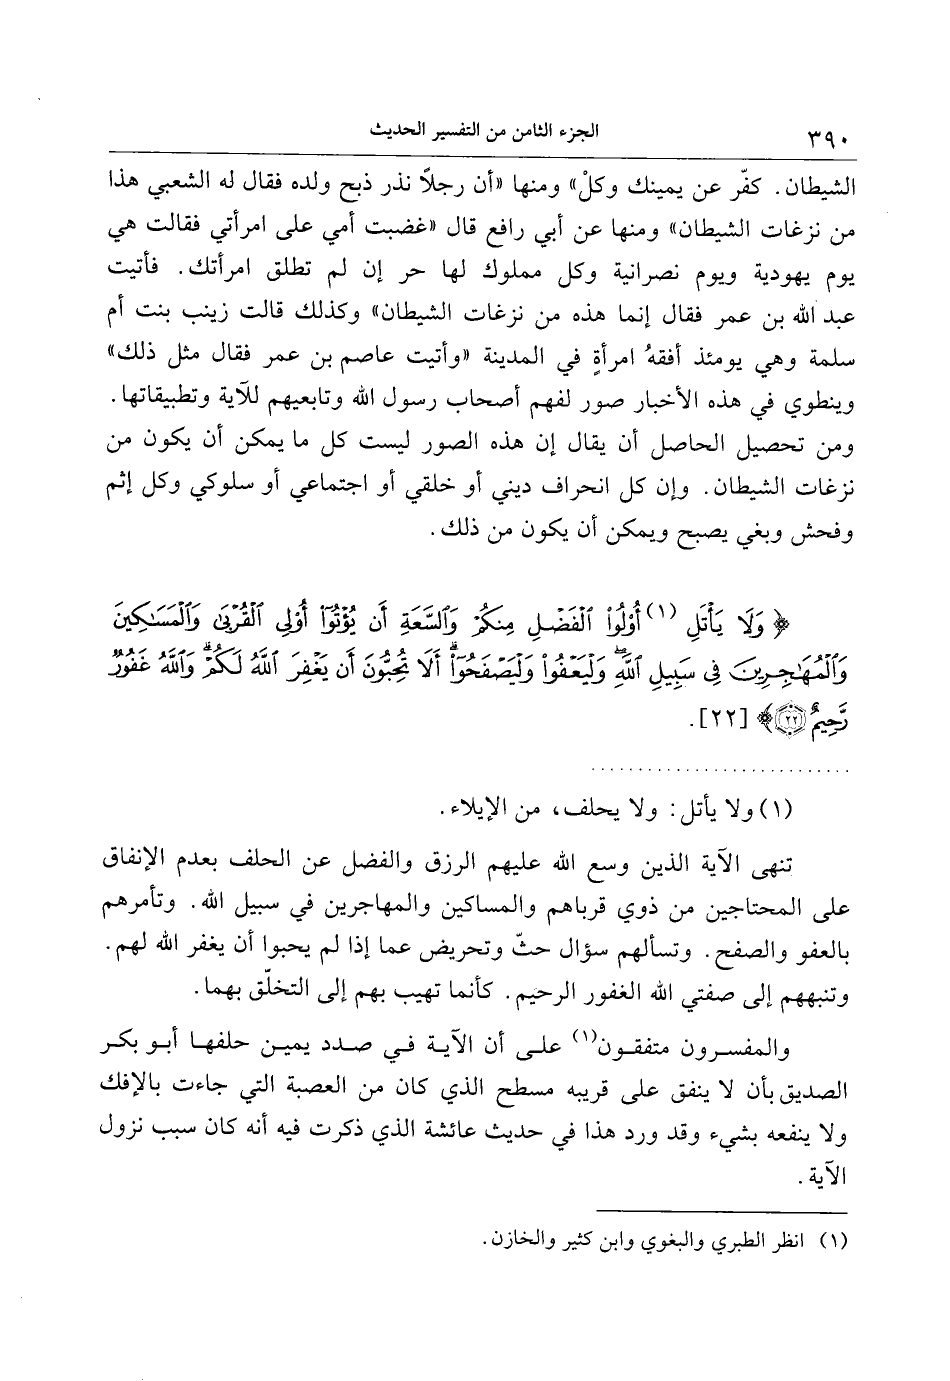 ٣٩٠
الجزء الثامن من التفسير الحديث
الشيطان. كفّر عن يمينك وكلْ» ومنها «أن رجلاً نذر ذبح ولده فقال له الشعبي هذا
من نزغات الشيطان» ومنها عن أبي رافع قال «غضبت أمي على امرأتي فقالت هي
يوم يهودية ويوم نصرانية وكل مملوك لها حر إن لم تطلق امرأتك. فأتيت
عبد الله بن عمر فقال إنما هذه من نزغات الشيطان» وكذلك قالت زينب بنت أم
سلمة وهي يومئذ أفقهُ امرأةٍ في المدينة «وأتيت عاصم بن عمر فقال مثل ذلك»
وينطوي في هذه الأخبار صور لفهم أصحاب رسول الله وتابعيهم للآية وتطبيقاتها.
ومن تحصيل الحاصل أن يقال إن هذه الصور ليست كل ما يمكن أن يكون من
نزغات الشيطان. وإن كل انحراف ديني أو خلقي أو اجتماعي أو سلوكي وكل إثم
وفحش وبغي يصبح ويمكن أن يكون من ذلك.
﴿ وَلَا يَأْتَلِ (١) أُوْلُواْ ٱلْفَضْلِ مِنكُمْ وَٱلسَّعَةِ أَن يُؤْتُوٓاْ أُوْلِي ٱلْقُرْبَىٰ وَٱلْمَسَٰكِينَ
وَٱلْمُهَٰجِرِينَ فِي سَبِيلِ ٱللَّهِۖ وَلْيَعْفُواْ وَلْيَصْفَحُوٓاْۗ أَلَا تُحِبُّونَ أَن يَغْفِرَ ٱللَّهُ لَكُمْۗ وَٱللَّهُ غَفُورٌ
رَّحِيمٌ ٢٢﴾ [٢٢].
..........................
(١) ولا يأتل: ولا يحلف، من الإيلاء.
تنهى الآية الذين وسع الله عليهم الرزق والفضل عن الحلف بعدم الإنفاق
على المحتاجين من ذوي قرباهم والمساكين والمهاجرين في سبيل الله. وتأمرهم
بالعفو والصفح. وتسألهم سؤال حثّ وتحريض عما إذا لم يحبوا أن يغفر الله لهم.
وتنبههم إلى صفتي الله الغفور الرحيم. كأنما تهيب بهم إلى التخلّق بهما.
والمفسرون متفقون(١) على أن الآية في صدد يمين حلفها أبو بكر
الصديق بأن لا ينفق على قريبه مسطح الذي كان من العصبة التي جاءت بالإفك
ولا ينفعه بشيء وقد ورد هذا في حديث عائشة الذي ذكرت فيه أنه كان سبب نزول
الآية.
(١) انظر الطبري والبغوي وابن كثير والخازن.